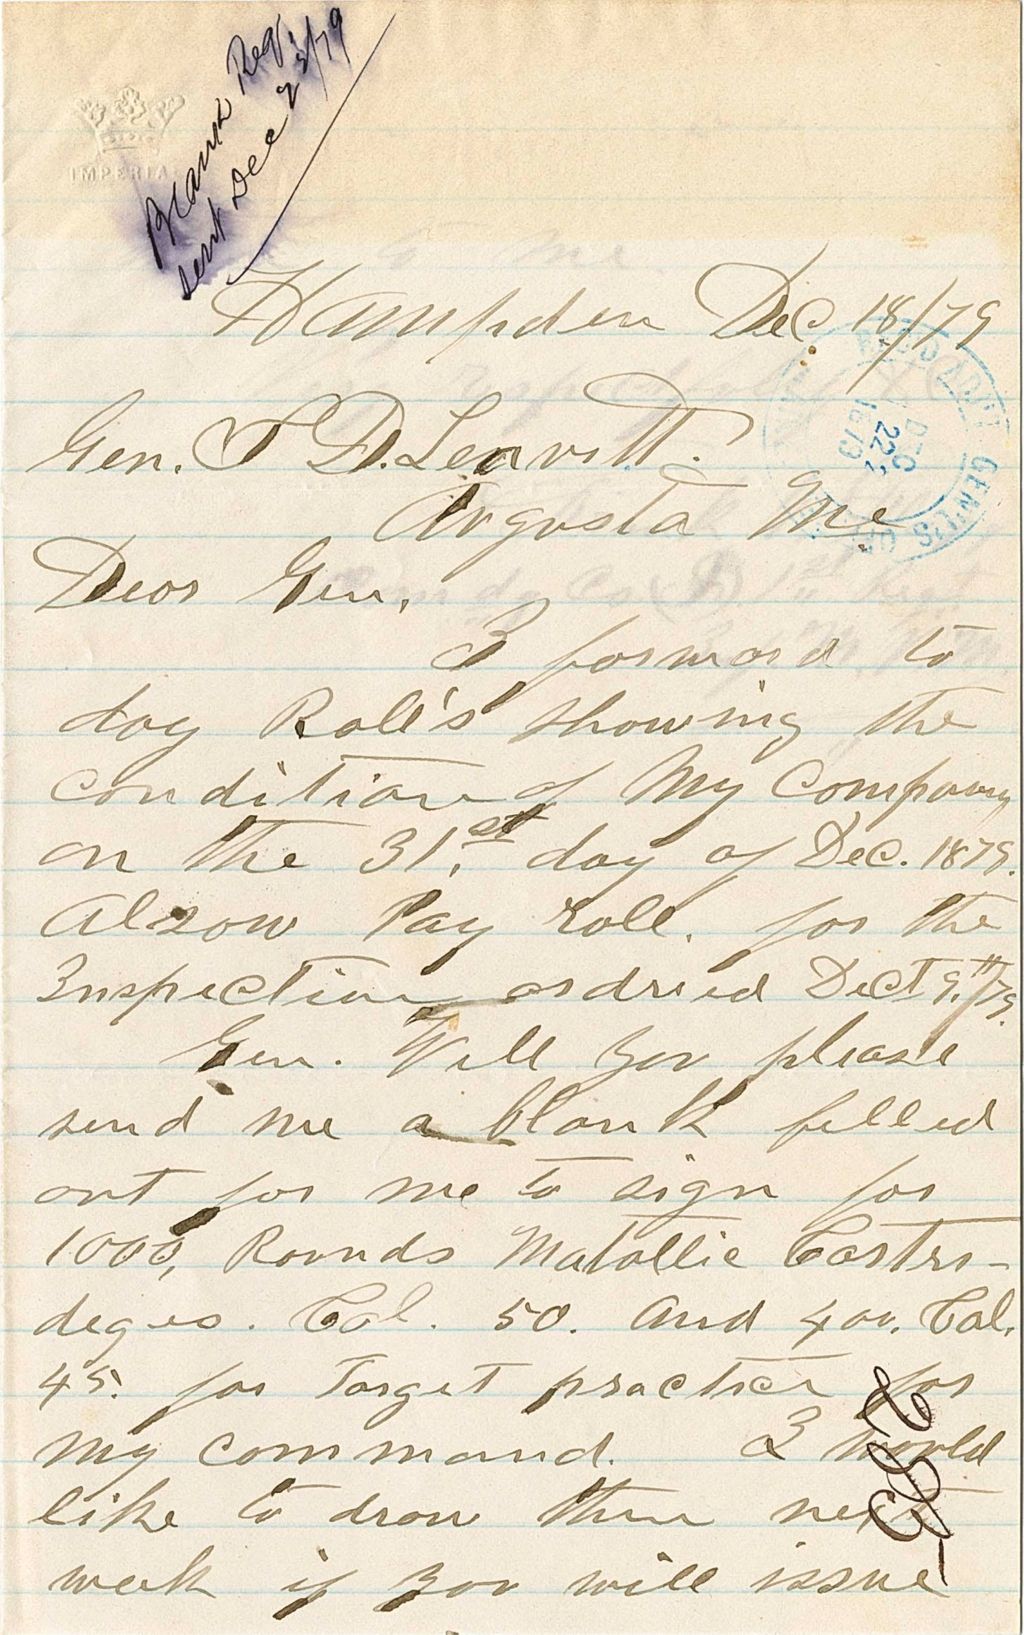 Blank Req.
sent Dec 23/79
IMPERIA
Hampden Dec. 18/79
Gen. S D. Leavitt.
Augusta Me.
DEC
22
1879
ADJT. GEN'L'S
Dear Gen.
I forward to
day Roll's showing the
condition of My Company
on the 31.st day of Dec. 1879.
Alzow Pay roll. for the
Inspection ordried Dect 9.th/79.
Gen. Will you please
send me a blank filled
out for me to sign for
1000, Rounds Matallic Cartri-
deges. Cal. 50. And 400. Cal.
45. for Target practice for
my command. I would
like to draw them next
week if you will issue